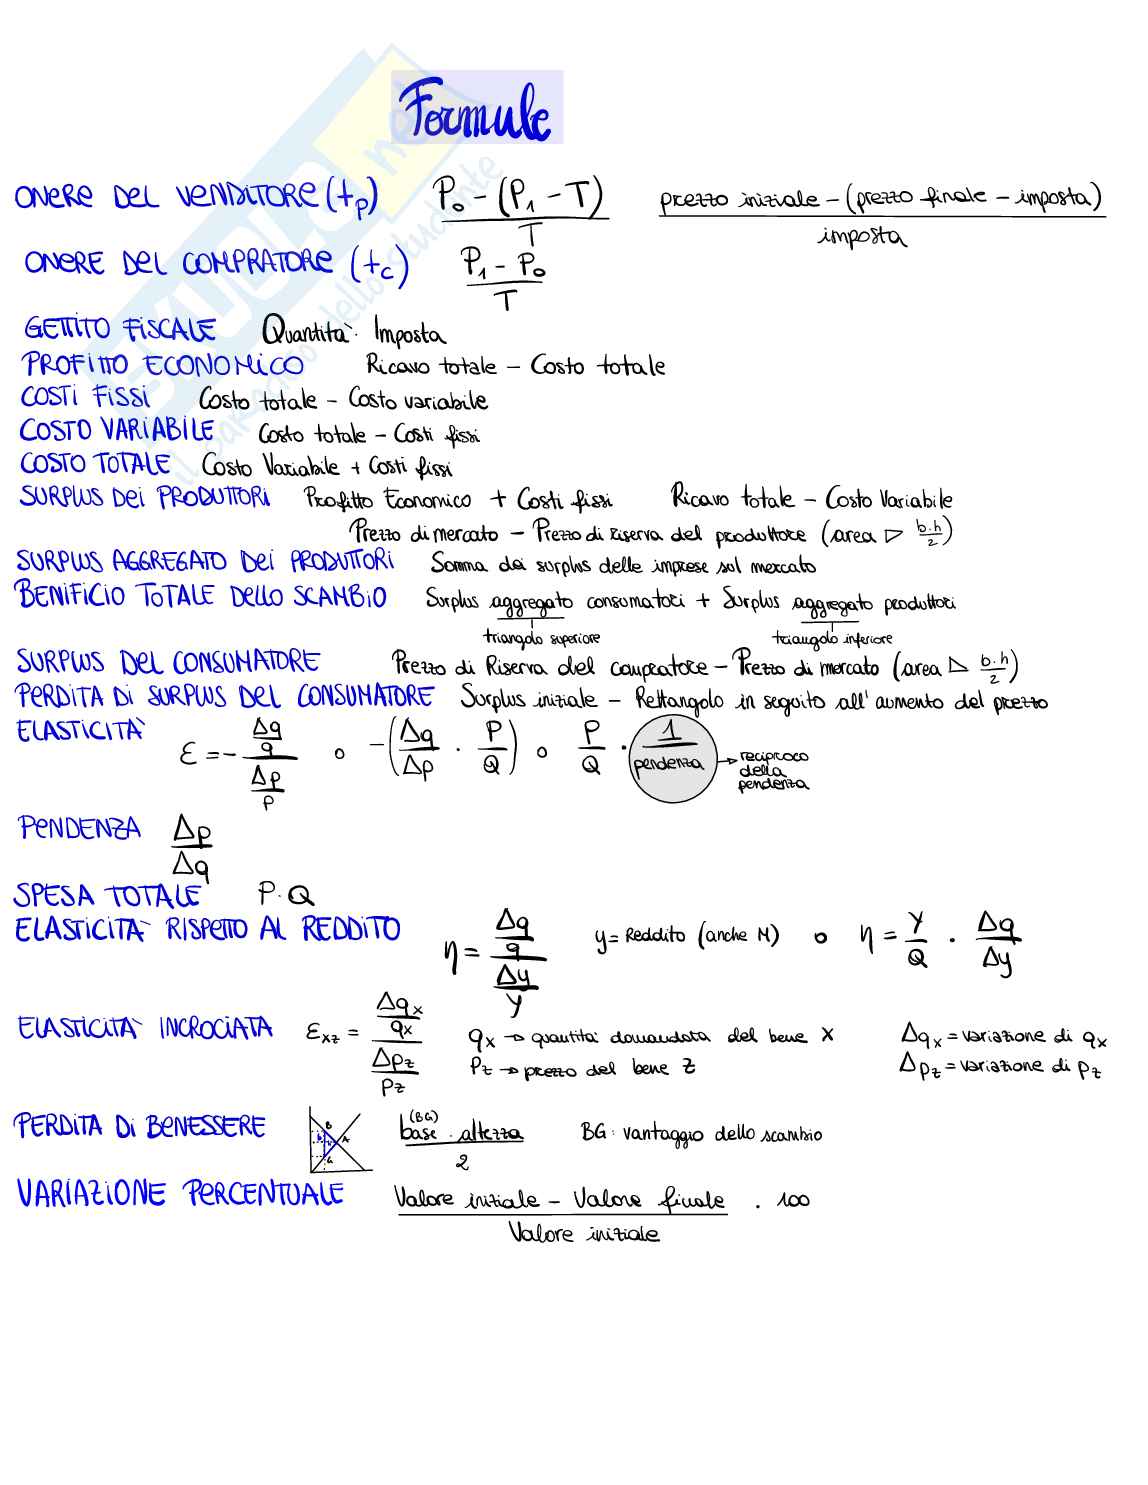 Formule
SKUOLA.net
il paradiso dello studente
ONERE DEL VENDITORE (tp) P₀ - (P₁ - T) / T prezzo iniziale - (prezzo finale - imposta) / imposta
ONERE DEL COMPRATORE (tc) P₁ - P₀ / T
GETTITO FISCALE Quantità · Imposta
PROFITTO ECONOMICO Ricavo totale - Costo totale
COSTI FISSI Costo totale - Costo variabile
COSTO VARIABILE Costo totale - Costi fissi
COSTO TOTALE Costo Variabile + Costi fissi
SURPLUS DEI PRODUTTORI Profitto Economico + Costi fissi Ricavo totale - Costo Variabile
Prezzo di mercato - Prezzo di riserva del produttore (area ▷ b.h/2)
SURPLUS AGGREGATO DEI PRODUTTORI Somma dei surplus delle imprese sul mercato
BENIFICIO TOTALE DELLO SCAMBIO Surplus aggregato consumatori + Surplus aggregato produttori
triangolo superiore triangolo inferiore
SURPLUS DEL CONSUMATORE Prezzo di Riserva del compratore - Prezzo di mercato (area ▷ b.h/2)
PERDITA DI SURPLUS DEL CONSUMATORE Surplus iniziale - Rettangolo in seguito all' aumento del prezzo
ELASTICITÀ ε = - (Δq/q) / (Δp/p) o -(Δq/Δp · P/Q) o P/Q · 1/pendenza → reciproco
della
pendenza
PENDENZA Δp/Δq
SPESA TOTALE P · Q
ELASTICITÀ RISPETTO AL REDDITO η = (Δq/q) / (Δy/y) y = Reddito (anche M) o η = Y/Q · Δq/Δy
ELASTICITÀ INCROCIATA εxz = (Δqx/qx) / (Δpz/pz) qx → quantità domandata del bene X Δqx = variazione di qx
Pz → prezzo del bene Z Δpz = variazione di pz
PERDITA DI BENESSERE B b A G (BG) base · altezza / 2 BG: vantaggio dello scambio
VARIAZIONE PERCENTUALE Valore iniziale - Valore finale / Valore iniziale · 100